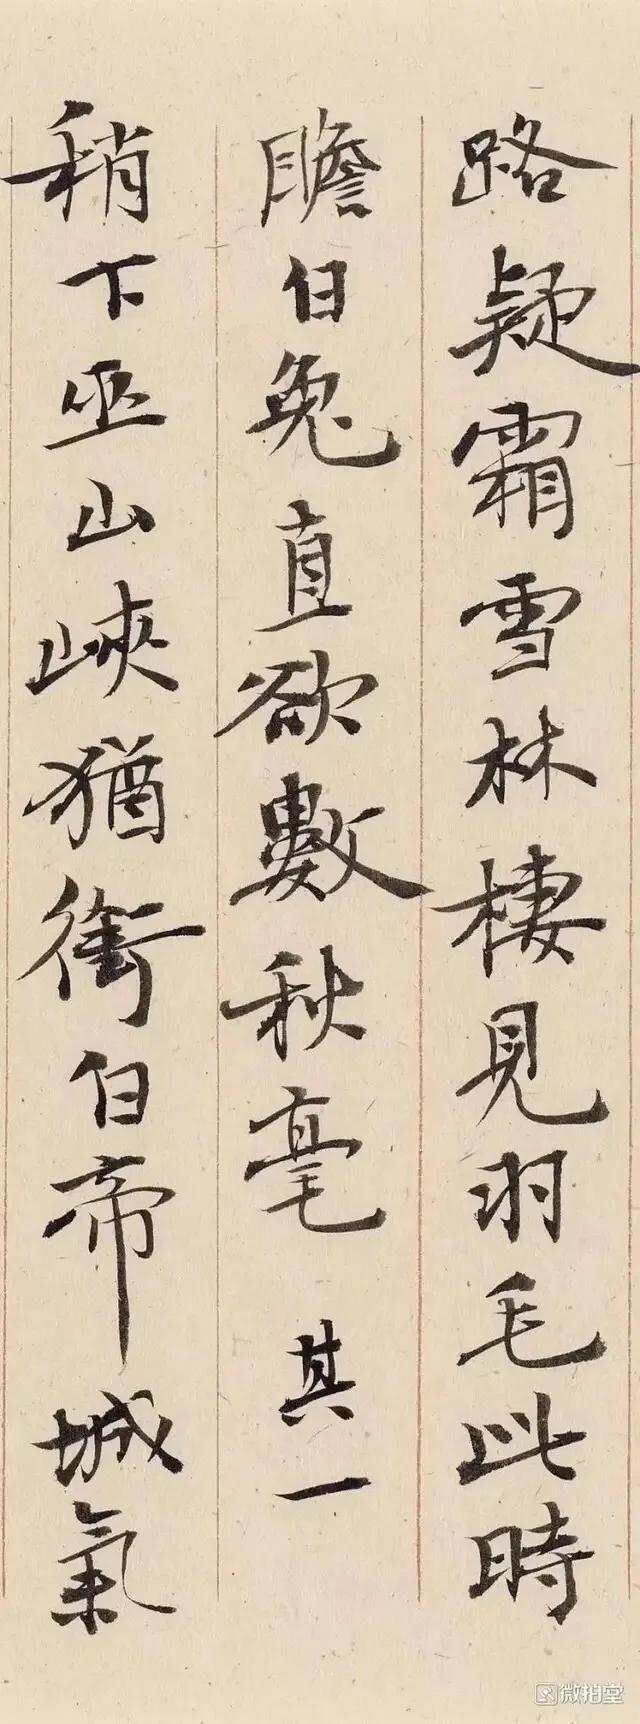 路疑霜雪林棲見羽毛此時
瞻白兔直欲數秋毫 其一
稍下巫山峽猶銜白帝城氣
微拍堂